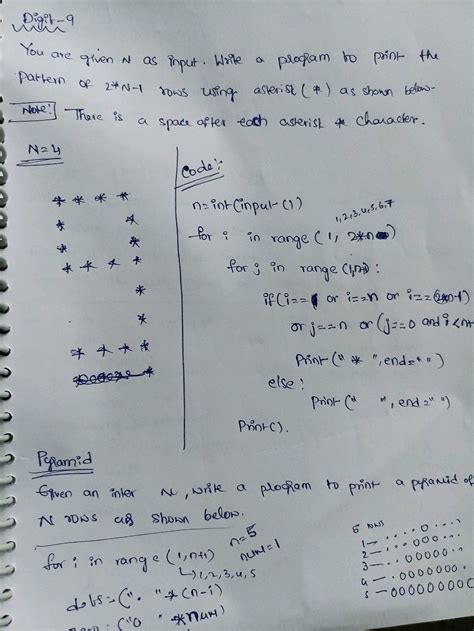 Digit-9
You are given N as input. Write a program to print the
pattern of 2*N-1 rows using asterisk (*) as shown below-
Note: There is a space after each asterisk * character.
N=4
* * * *
* *
* *
* * * *
*
*
* * * *
Code:-
n=int(input())
1,2,3,4,5,6,7
for i in range (1, 2*n)
for j in range (1,n+1):
if(i== 1 or i==n or i==(2*n-1)
or j==n or (j==0 and i<n+
Print(" * ",end=" ")
else:
Print(" ", end=" ")
Print().
Pyramid
Given an inter N, write a program to print a pyramid of
N rows as shown below.
for i in range (1,n+1) n=5
num=1
1,2,3,4,5
dots=(". "*(n-i)
("0 "*num)
5 rows
1-....0....
2-...000...
3-..00000..
4-.0000000.
5-000000000